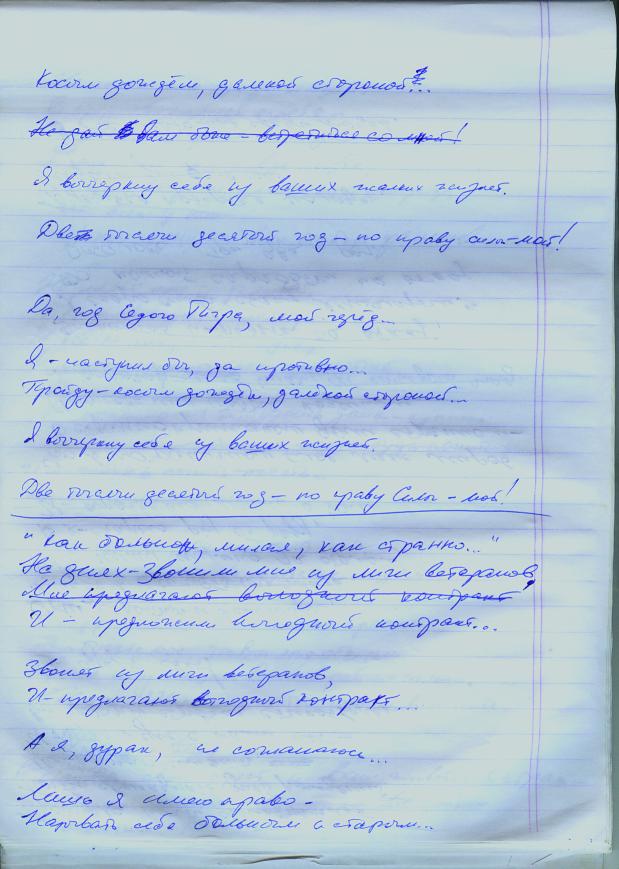 Косым дождём, далекой стороной!...
Не дай Вам боже - встретиться со мной!
Я вычеркну себя из ваших жалких жизней.
Две тысячи десятый год - по праву силы - мой!
Да, год Седого Тигра, мой черёд...
Я - наступил бы, да противно...
Пройду - косым дождём, далёкой стороной...
Я вычеркну себя из ваших жизней.
Две тысячи десятый год - по праву Силы - мой!
"Как больно, милая, как странно..."
На днях - Звонили мне из лиги ветеранов,
Мне предлагают выгодный контракт
И - предложили выгодный контракт...
Звонят из лиги ветеранов,
И - предлагают выгодный контракт...
А я, дурак, не соглашаюсь...
Лишь я имею право -
Называть себя больным и старым...